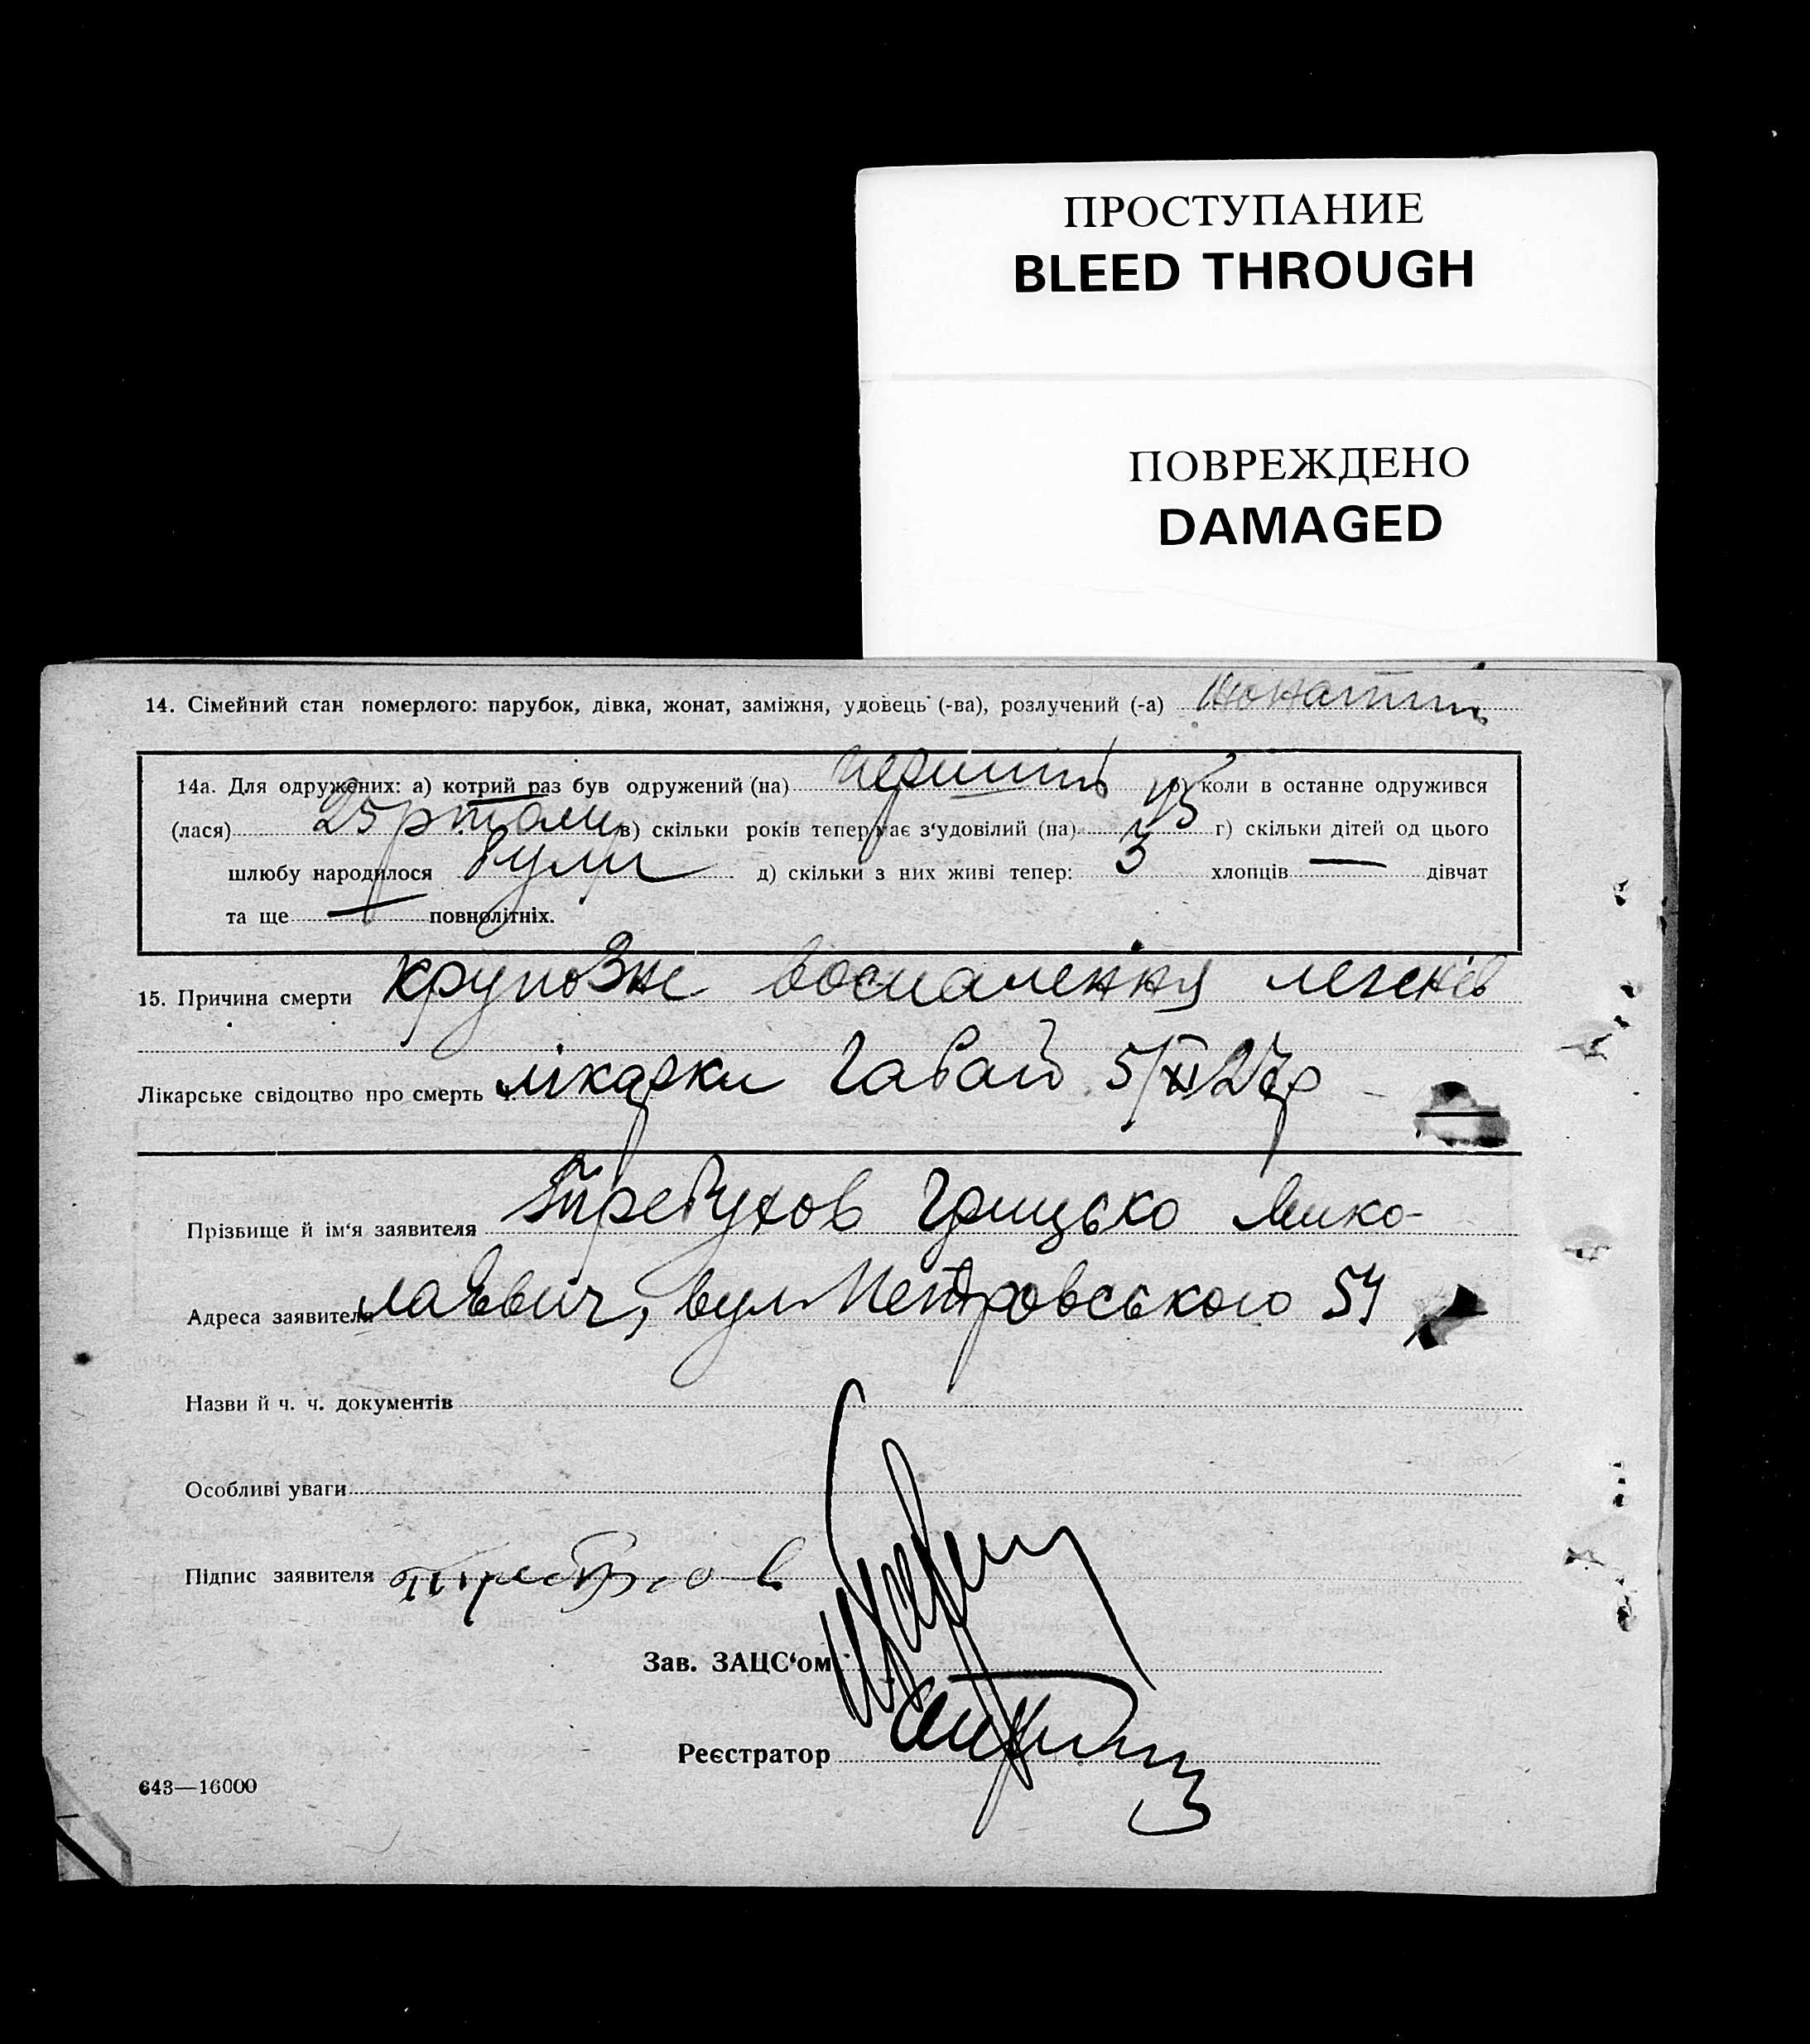 ПРОСТУПАНИЕ
BLEED THROUGH
ПОВРЕЖДЕНО
DAMAGED
14. Сімейний стан померлого: парубок, дівка, жонат, заміжня, удовець (-ва), розлучений (-а)
14а. Для одружених: а) котрий раз був одружений (на) коли в останне одружився
(лася) 25 р тому в) скільки років тепер має з'удовілий (на) 45 г) скільки дітей од цього
шлюбу народилося були д) скільки з них живі тепер: 3 хлопців — дівчат
та ще — повнолітніх.
15. Причина смерти крупозне воспаленіня легенів
Лікарське свідоцтво про смерть ч. лікарки 5/XI 27 р
Прізвище й ім'я заявителя Требухов Грицько Мико-
Адреса заявителя лаєвич, вул Петровського 54
Назви й ч. ч. документів
Особливі уваги
Підпис заявителя Требухов
Зав. ЗАЦС'ом
Реєстратор
643—16000